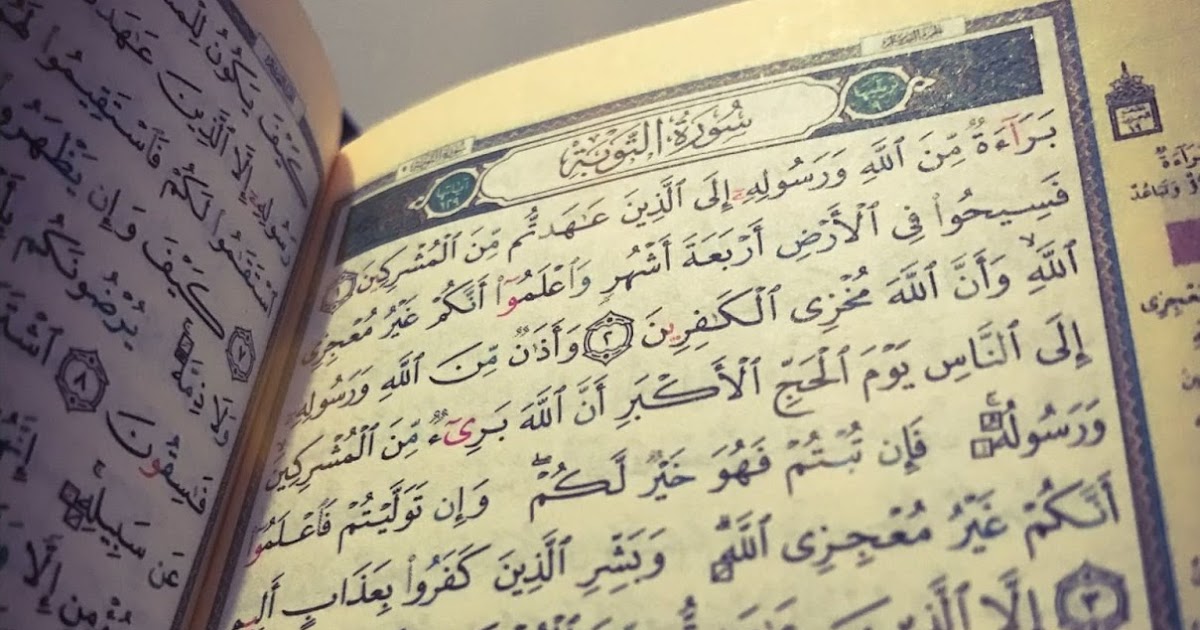 سُورَةُ التَّوْبَةِ
بَرَآءَةٌ مِّنَ ٱللَّهِ وَرَسُولِهِۦٓ إِلَى ٱلَّذِينَ عَـٰهَدتُّم مِّنَ ٱلْمُشْرِكِينَ ١
فَسِيحُوا۟ فِى ٱلْأَرْضِ أَرْبَعَةَ أَشْهُرٍ وَٱعْلَمُوٓا۟ أَنَّكُمْ غَيْرُ مُعْجِزِى
ٱللَّهِ وَأَنَّ ٱللَّهَ مُخْزِى ٱلْكَـٰفِرِينَ ٢ وَأَذَٰنٌ مِّنَ ٱللَّهِ وَرَسُولِهِۦٓ
إِلَى ٱلنَّاسِ يَوْمَ ٱلْحَجِّ ٱلْأَكْبَرِ أَنَّ ٱللَّهَ بَرِىٓءٌ مِّنَ ٱلْمُشْرِكِينَ
وَرَسُولُهُۥ فَإِن تُبْتُمْ فَهُوَ خَيْرٌ لَّكُمْ وَإِن تَوَلَّيْتُمْ فَٱعْلَمُوٓا۟
أَنَّكُمْ غَيْرُ مُعْجِزِى ٱللَّهِ وَبَشِّرِ ٱلَّذِينَ كَفَرُوا۟ بِعَذَابٍ أَلِيمٍ
٣ إِلَّا ٱلَّذِينَ
كَيْفَ يَكُونُ
رَسُولِهِۦٓ إِلَّا ٱلَّذِينَ
ٱسْتَقَـٰمُوا۟ لَكُمْ فَٱسْتَقِيمُوا۟
٧ كَيْفَ وَإِن يَظْهَرُوا۟
وَلَا ذِمَّةً يُرْضُونَكُم
فَـٰسِقُونَ ٨
عَن سَبِيلِهِۦٓ
مُؤْمِنٍ إِلًّا